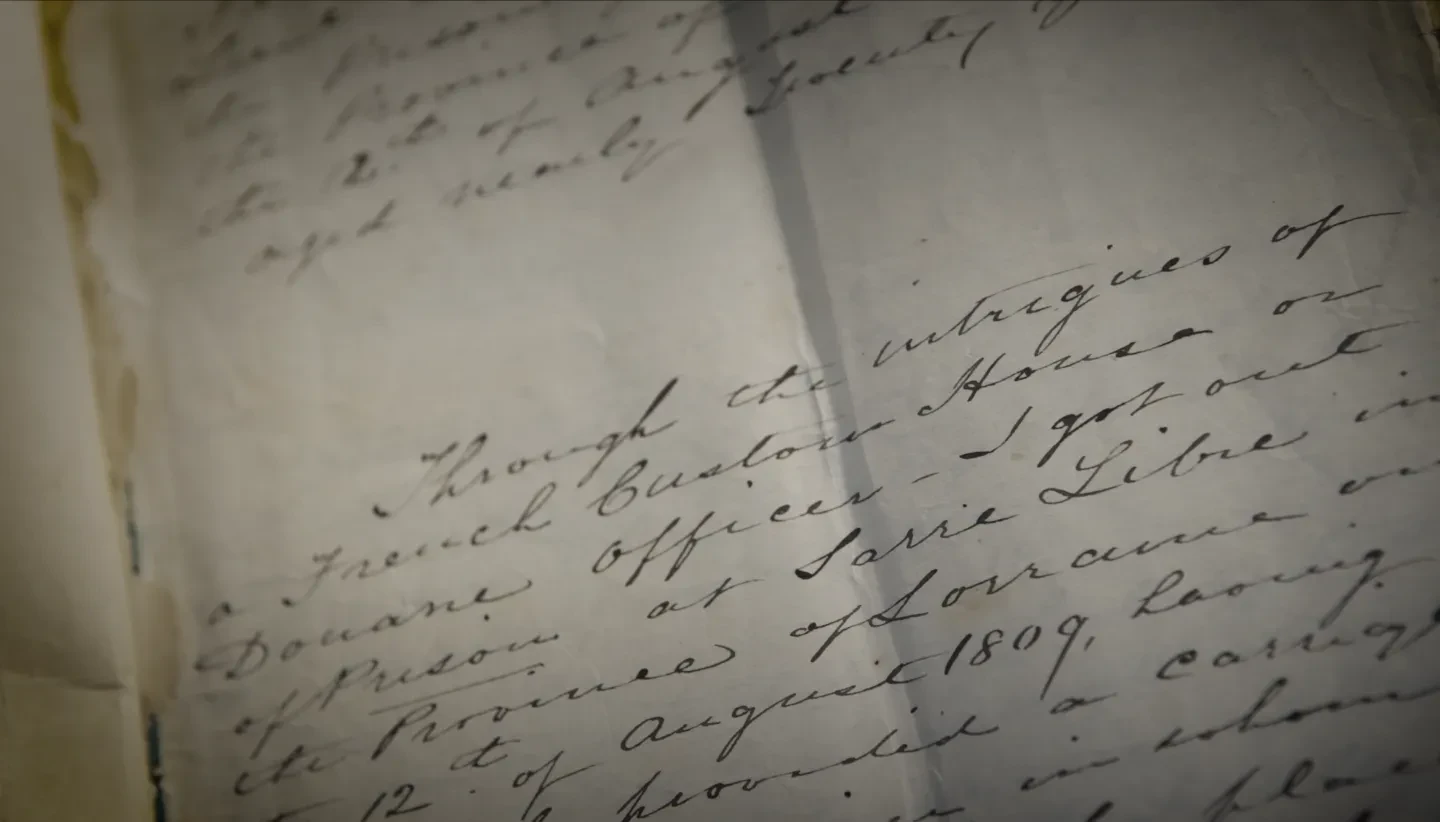 the Province of
the 2.d of August
aged nearly Twenty
Through the intrigues of
a French Custom House or
Douane officer – I got out
of Prison at Sarre Libre in
the Province of Lorraine on
12 th of August 1809, having
provided a carriage
in whom
place